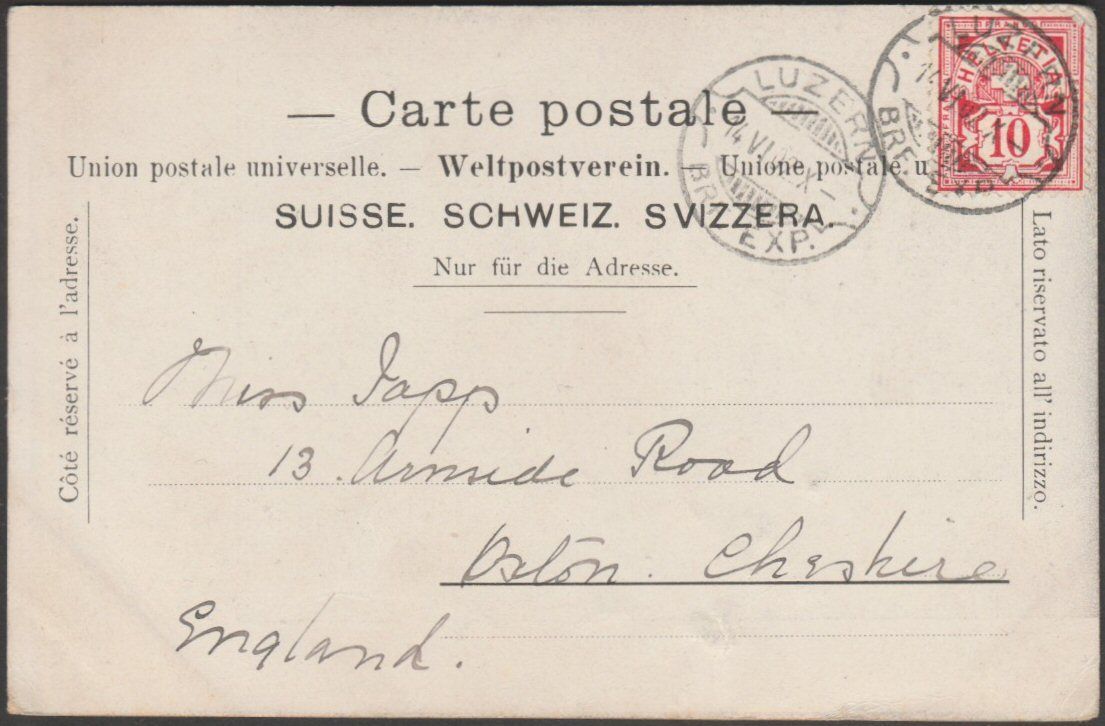 — Carte postale —
Union postale universelle. — Weltpostverein. — Unione postale u
SUISSE. SCHWEIZ. SVIZZERA.
Nur für die Adresse.
Côté réservé à l'adresse.
Lato riservato all' indirizzo.
HELVETIA
10
LUZERN
14 VI
X
BRF. EXP.
LUZERN
BRF. EXP.
Miss Japps
13 Armide Road
Oxton. Cheshire
England.